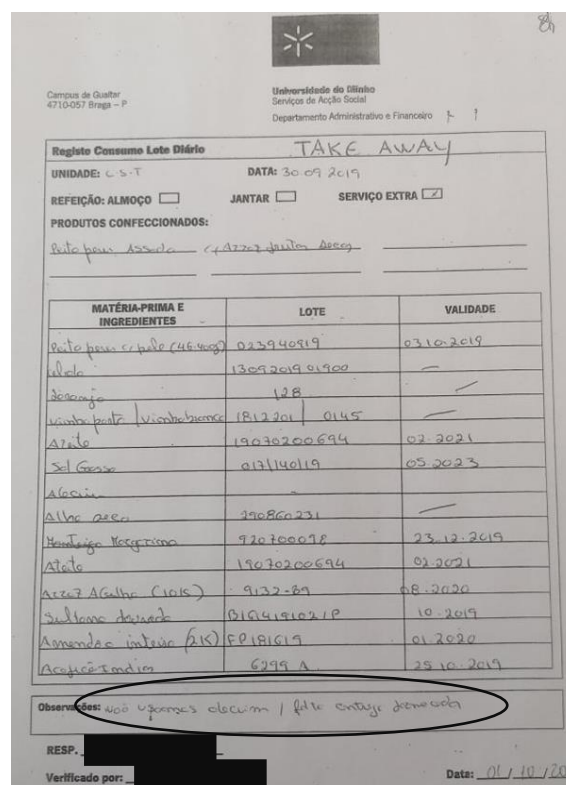 Campus de Gualtar
4710-057 Braga – P
Universidade do Minho
Serviços de Acção Social
Departamento Administrativo e Financeiro
Registo Consumo Lote Diário TAKE AWAY
UNIDADE: C.S.T DATA: 30.09.2019
REFEIÇÃO: ALMOÇO JANTAR SERVIÇO EXTRA
PRODUTOS CONFECCIONADOS:
Peito peru Assado c/ Arroz frutos Secos
MATÉRIA-PRIMA E INGREDIENTES LOTE VALIDADE
Peito peru c/ pele 023940819 03.10.2019
1309201901900 —
128
vinho branco 1812201 0145 —
Azeite 19070200694 02.2021
Sal Grosso 017/140/19 05.2023
Alecrim -
Alho seco 290860231 —
920700098 23.12.2019
Azeite 19070200694 02.2021
Arroz Agulha (10K) 9132-89 08.2020
Sultana 10.2019
Amendoa inteira (2K) FP181619 01.2020
6299 A 25.10.2019
Observações: não alecrim /
RESP.
Verificado por: Data: 01/10/20